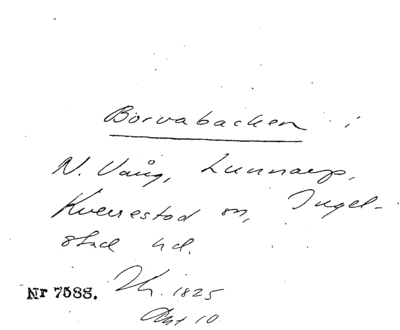 Borvabacken i
N. Vång, Lunnarp,
Kverrestad sn, Ingel-
stad hd.
Nr 7588. 1825
Akt 10